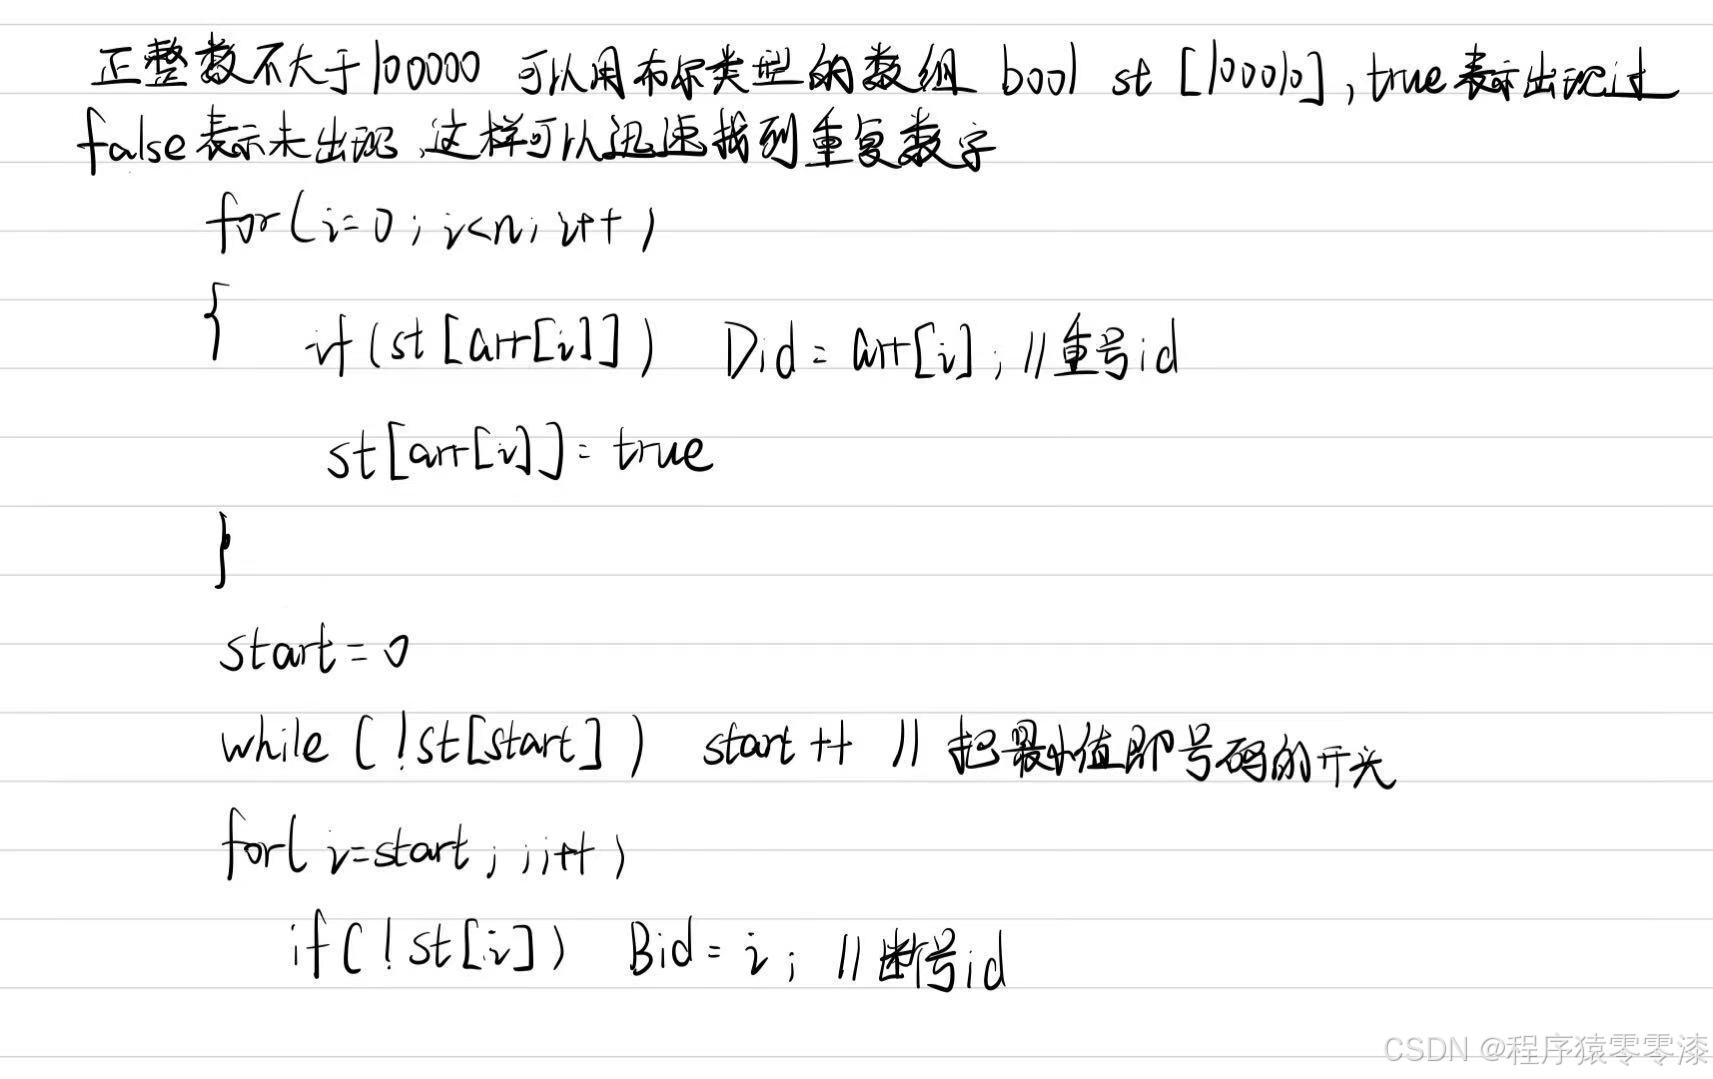 正整数不大于100000 可以用布尔类型的数组 bool st [100010], true表示出现过
false表示未出现,这样可以迅速找到重复数字
for(i=0; i<n; i++)
{ if(st[arr[i]]) Did = arr[i]; //重号id
st[arr[i]] = true
}
start = 0
while (!st[start]) start ++ // 把最小值即号码的开头
for( i=start; ; i++)
if(!st[i]) Bid = i; //断号id
CSDN @程序猿零零漆